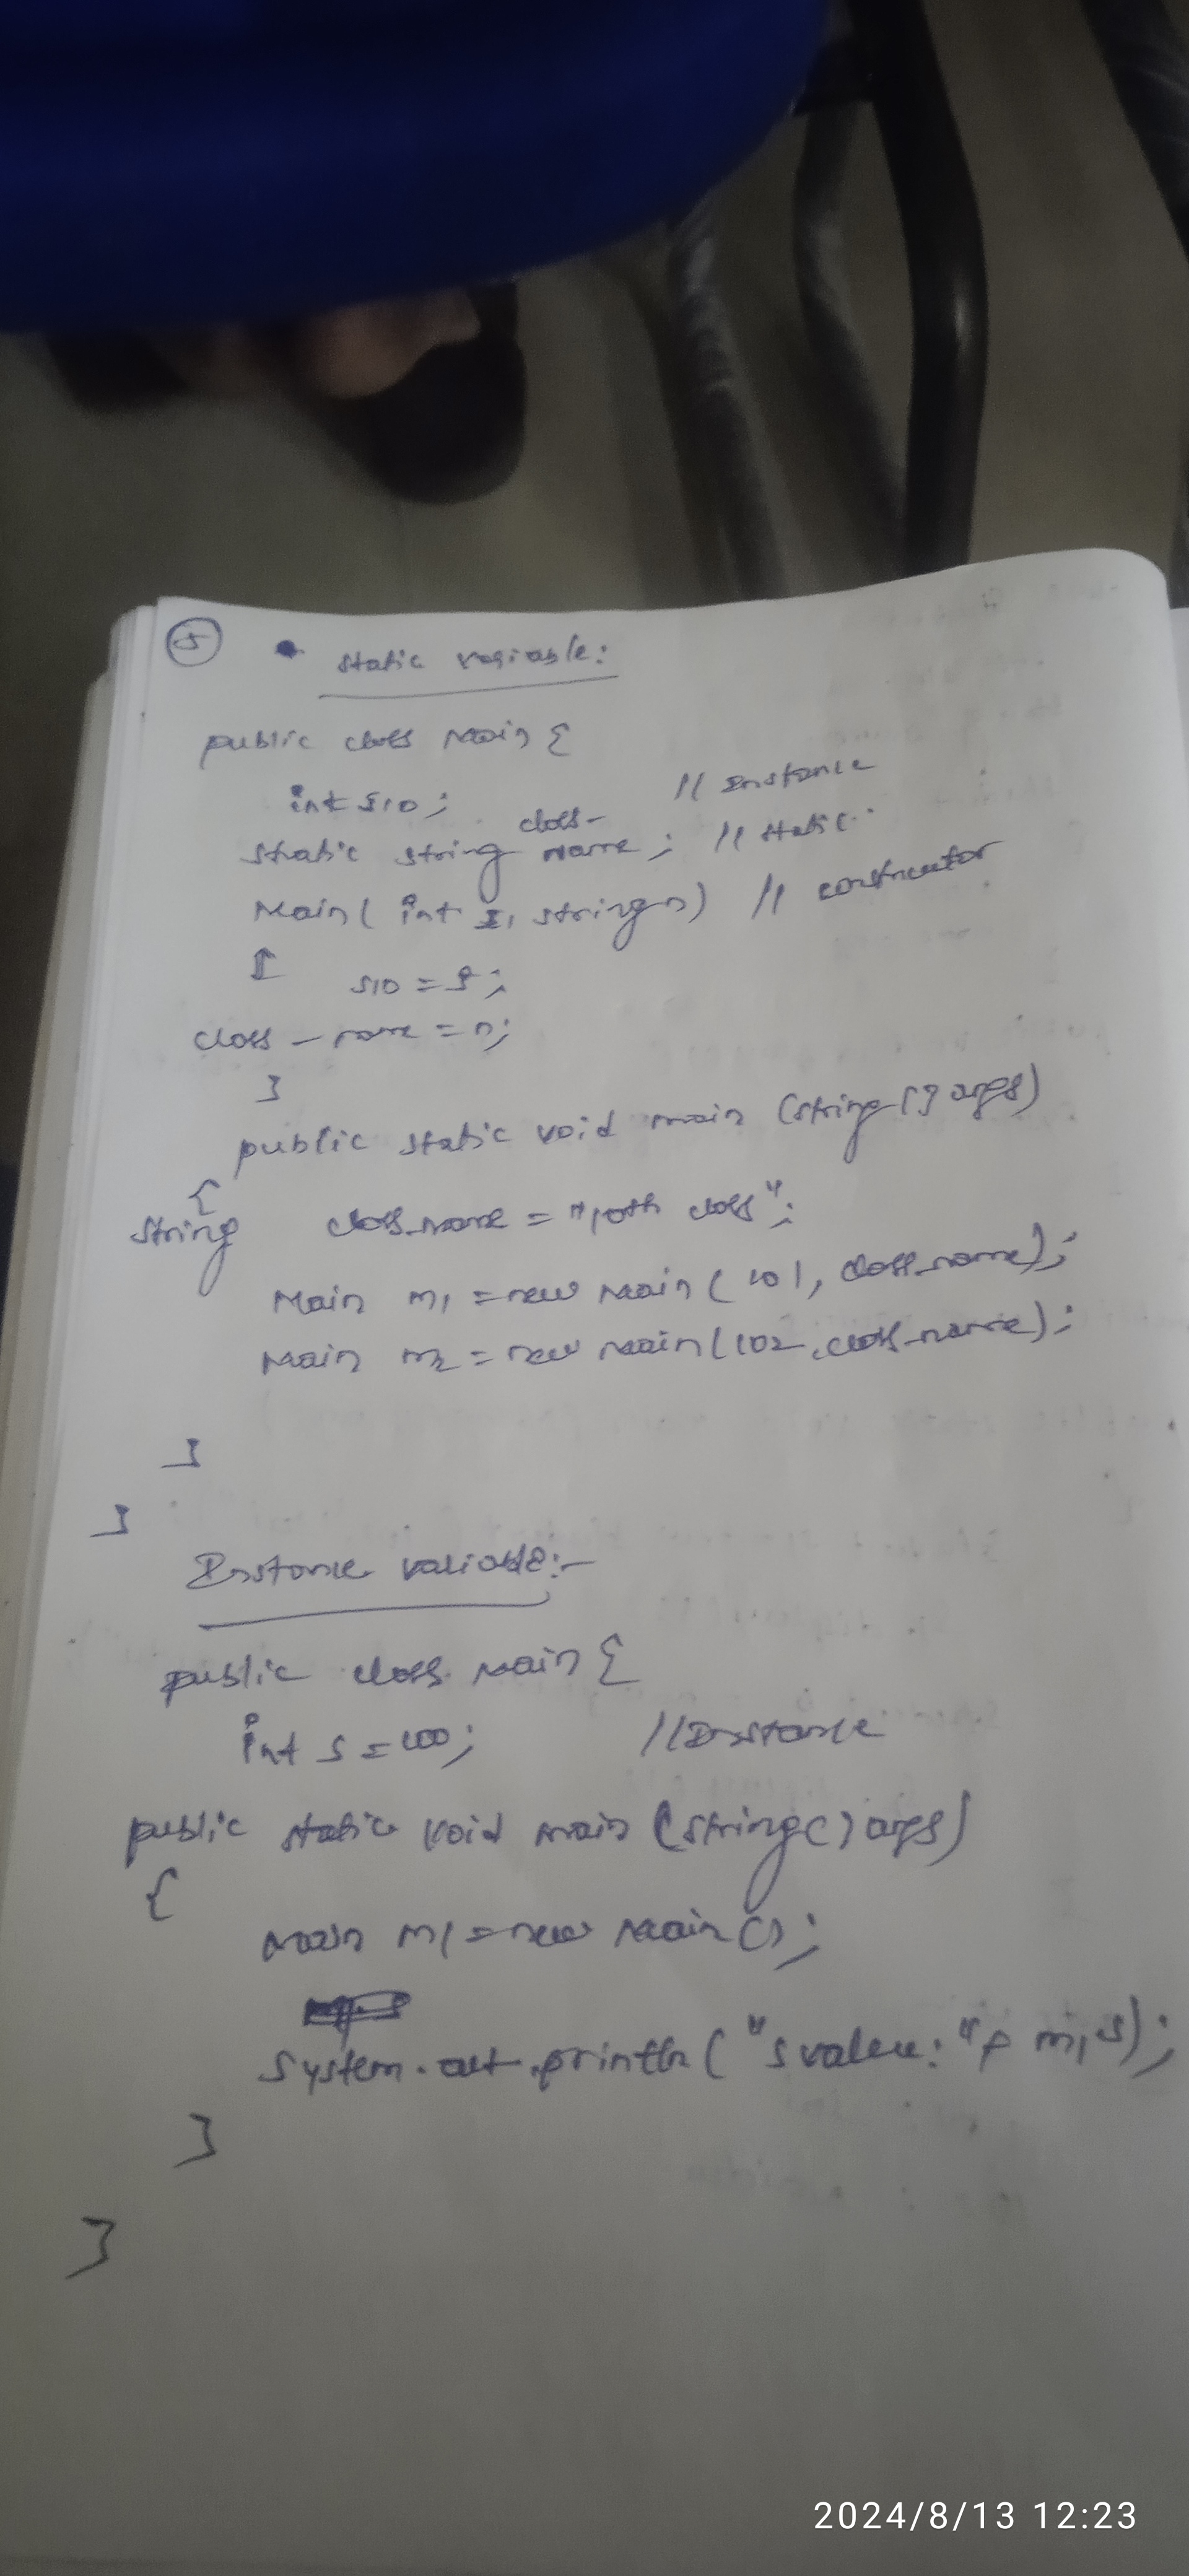 5 • static variable:
public class Main {
int SID; // Instance
static string class-name; // static
Main( int s, string n) // constructor
{
SID = s;
class-name = n;
}
public static void main (string [] args)
{
string class_name = "10th class";
Main m1 = new Main( 101, class_name);
Main m2 = new Main(102, class_name);
}
}
Instance variable:-
public class Main {
int s = 100; //Instance
public static void main (string() args)
{
Main m1 = new Main();
System.out.println( "s value: "+ m1.s);
}
}
2024/8/13 12:23